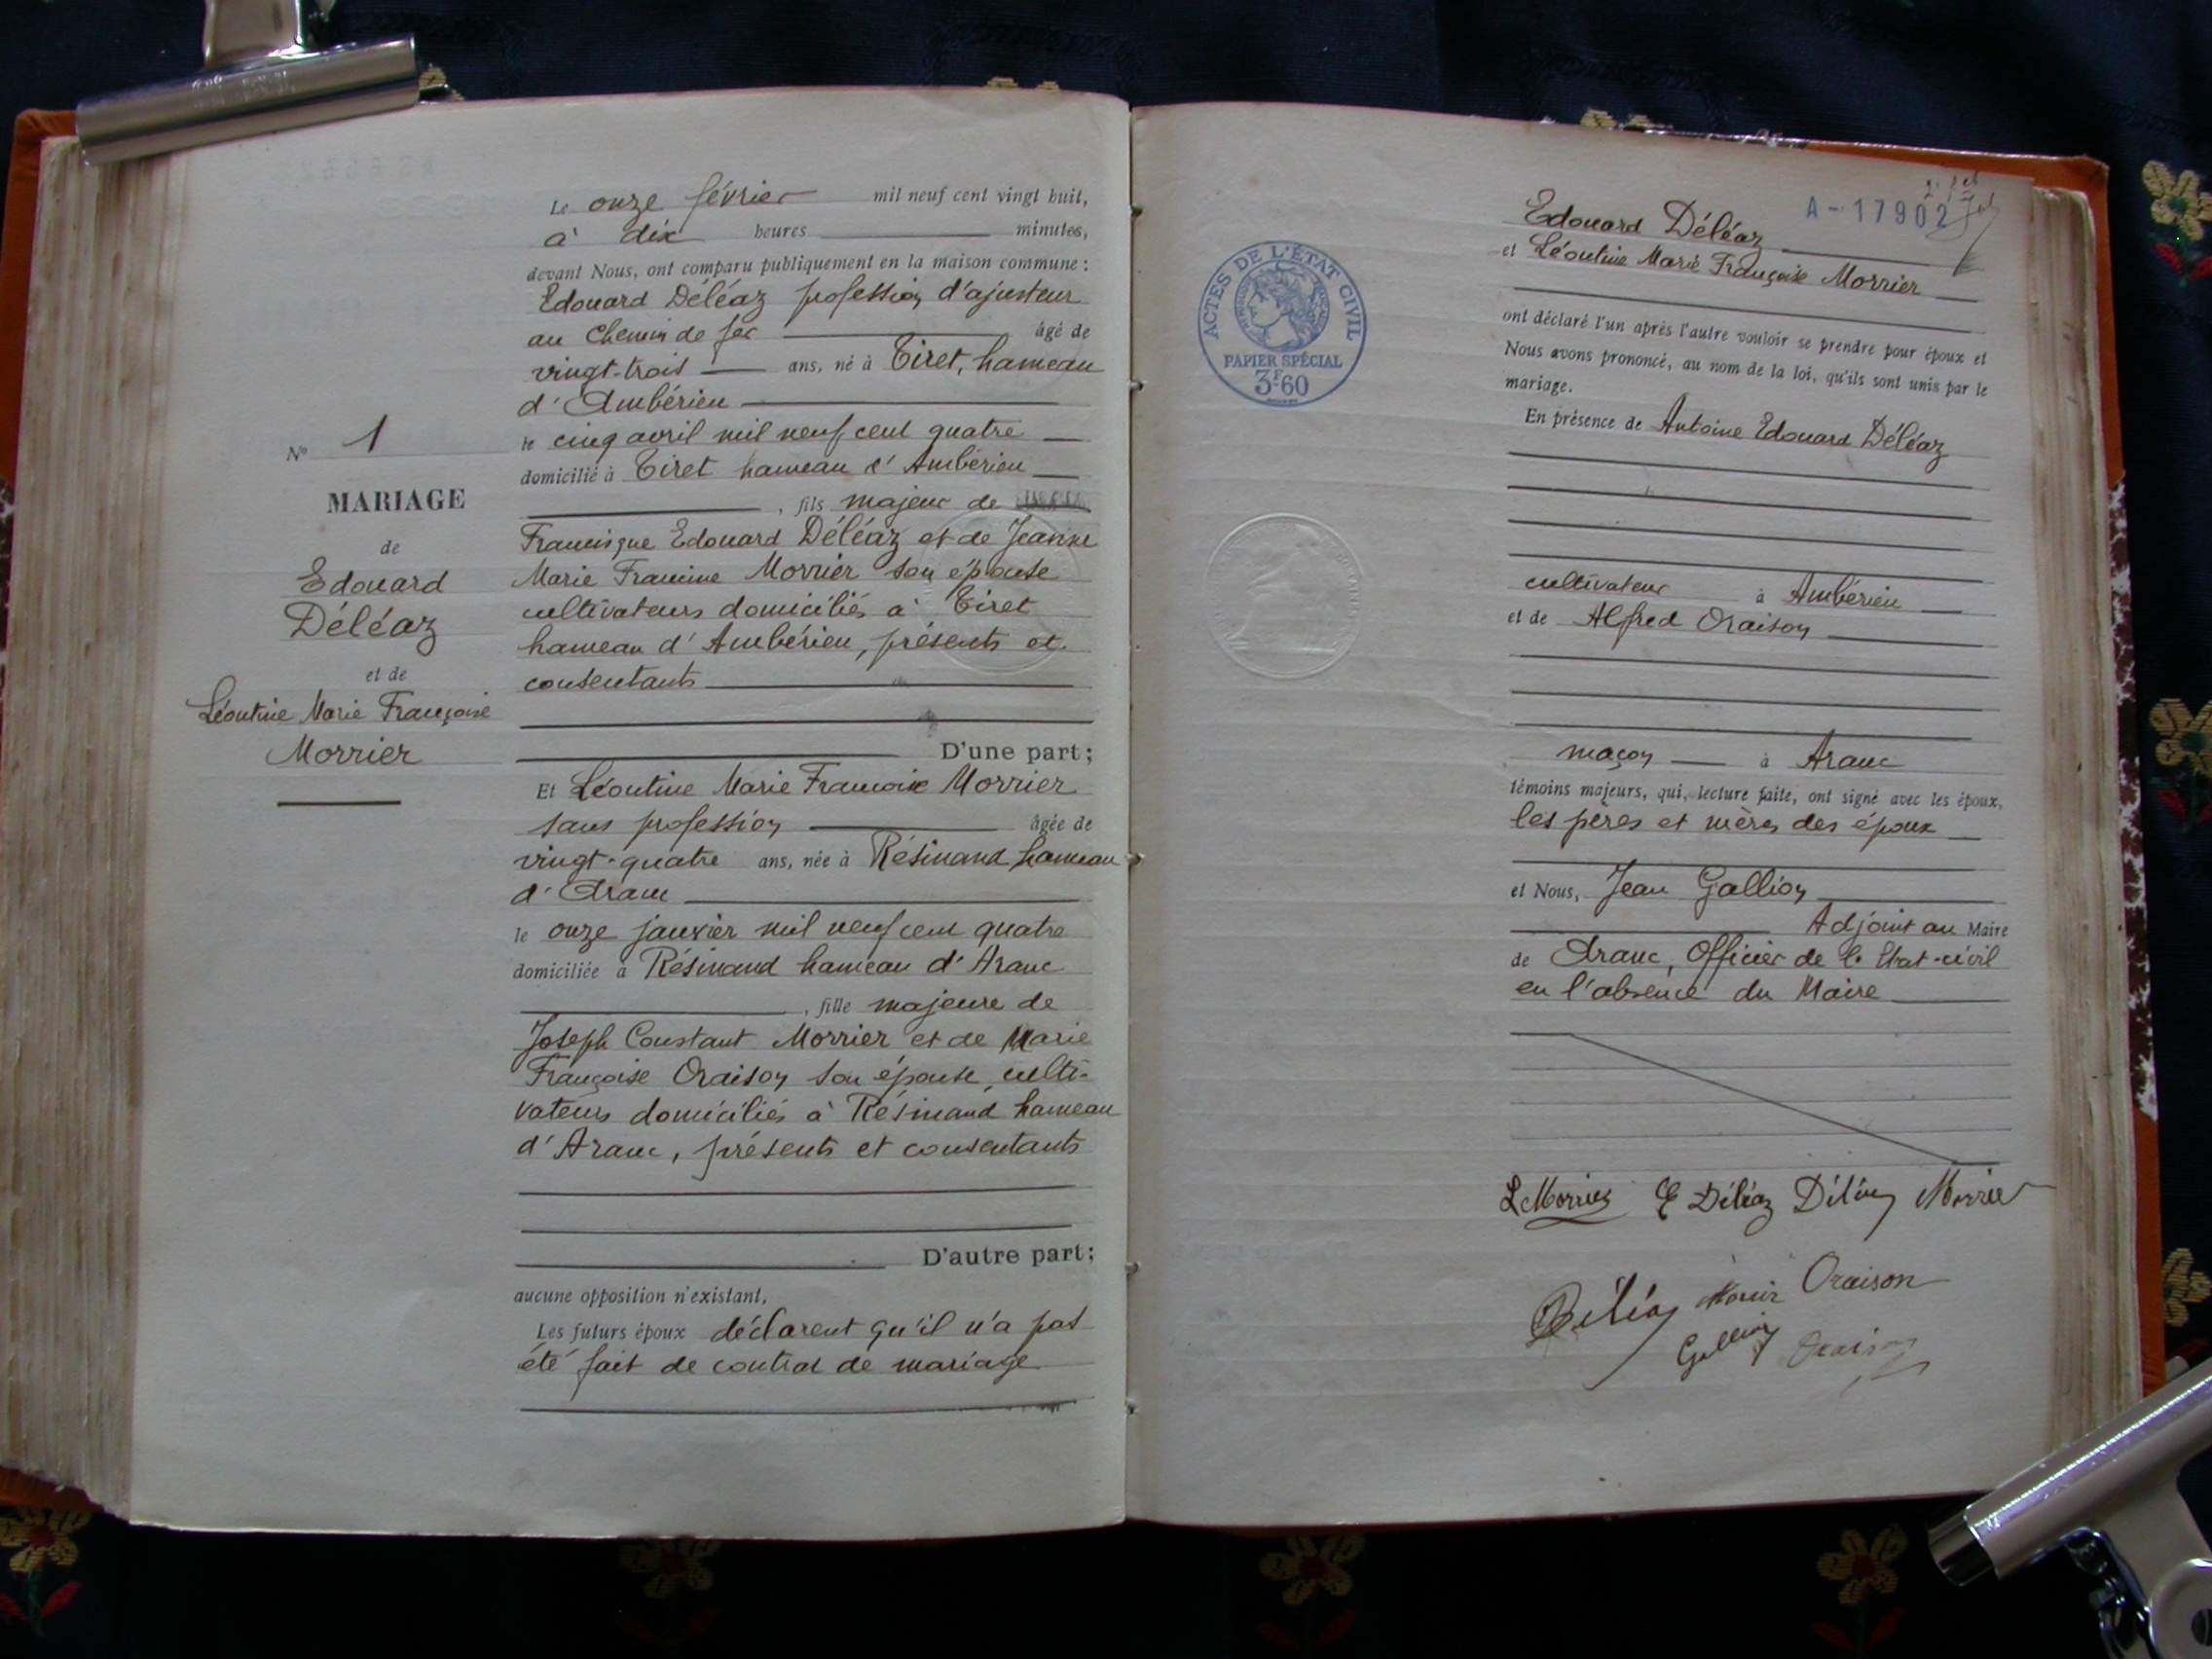 Le onze février mil neuf cent vingt huit,
à dix heures minutes,
devant Nous, ont comparu publiquement en la maison commune :
Edouard Déléaz profession d'ajusteur
au Chemin de fer âgé de
vingt-trois ans, né à Tiret, hameau
d'Ambérieu
le cinq avril mil neuf cent quatre
domicilié à Tiret hameau d'Ambérieu
, fils majeur de
Francisque Edouard Déléaz et de Jeanne
Marie Francine Morrier son épouse
cultivateurs domiciliés à Tiret
hameau d'Ambérieu, présents et
consentants
D'une part ;
Et Léontine Marie Francoise Morrier
sans profession âgée de
vingt-quatre ans, née à Résinand hameau
d'Aranc
le onze janvier mil neuf cent quatre
domiciliée à Résinand hameau d'Aranc
, fille majeure de
Joseph Constant Morrier et de Marie
Françoise Oraison son épouse, culti-
vateurs domiciliés à Résinand hameau
d'Aranc, présents et consentants
D'autre part ;
aucune opposition n'existant,
Les futurs époux déclarent qu'il n'a pas
été fait de contrat de mariage
N° 1
MARIAGE
de
Edouard
Déléaz
et de
Léontine Marie Françoise
Morrier
A-17902
Edouard Déléaz
et Léontine Marie Françoise Morrier
ont déclaré l'un après l'autre vouloir se prendre pour époux et
Nous avons prononcé, au nom de la loi, qu'ils sont unis par le
mariage.
En présence de Antoine Edouard Déléaz
cultivateur à Ambérieu
et de Alfred Oraison
maçon à Aranc
témoins majeurs, qui, lecture faite, ont signé avec les époux,
les pères et mères des époux
et Nous, Jean Gallion
Adjoint au Maire
de Aranc, Officier de l'Etat-civil
en l'absence du Maire
L Morrier E Déléaz Déléaz Morrier
Déléaz Morrier Oraison
Gallion Oraison
ACTES DE L'ÉTAT CIVIL
PAPIER SPÉCIAL
3F.60